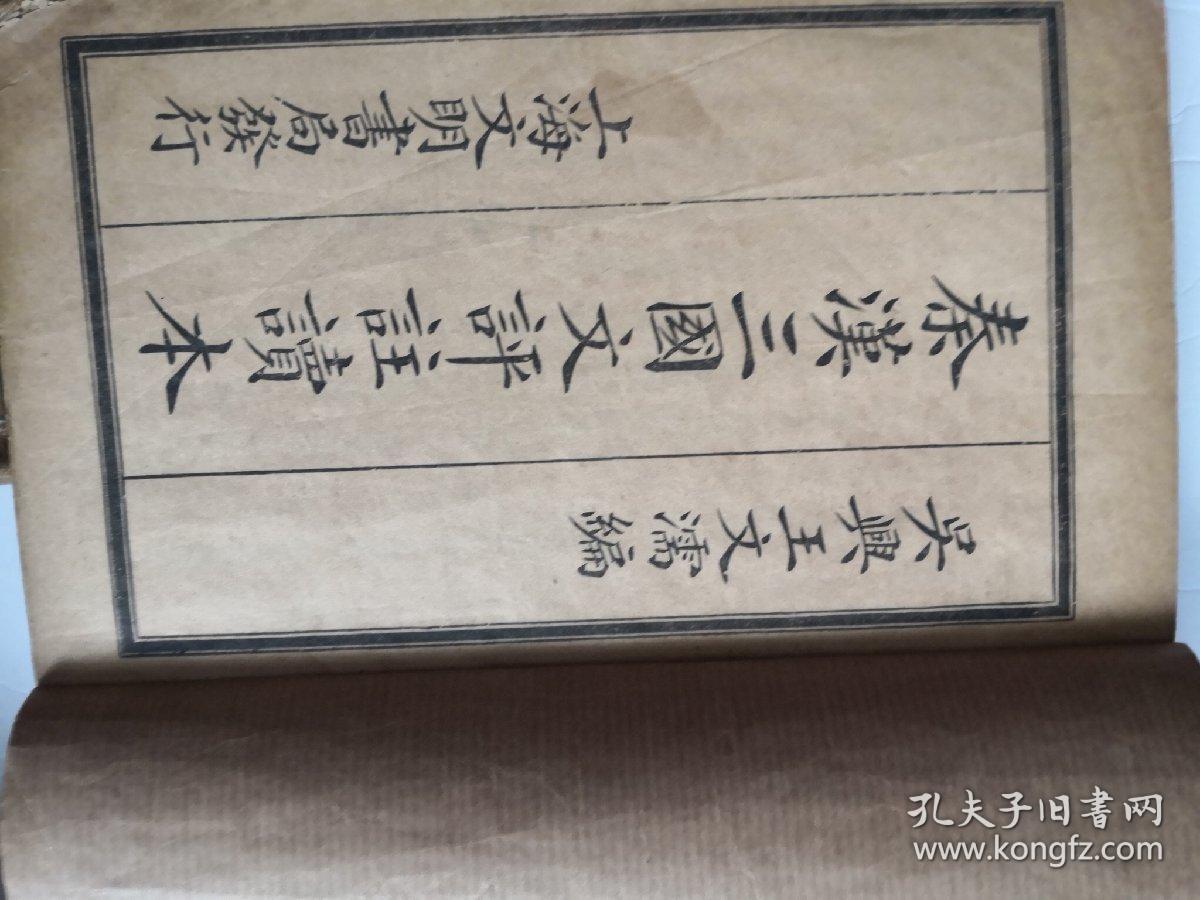 吳興王文濡編
秦漢三國文評註讀本
上海文明書局發行
孔夫子旧书网
www.kongfz.com